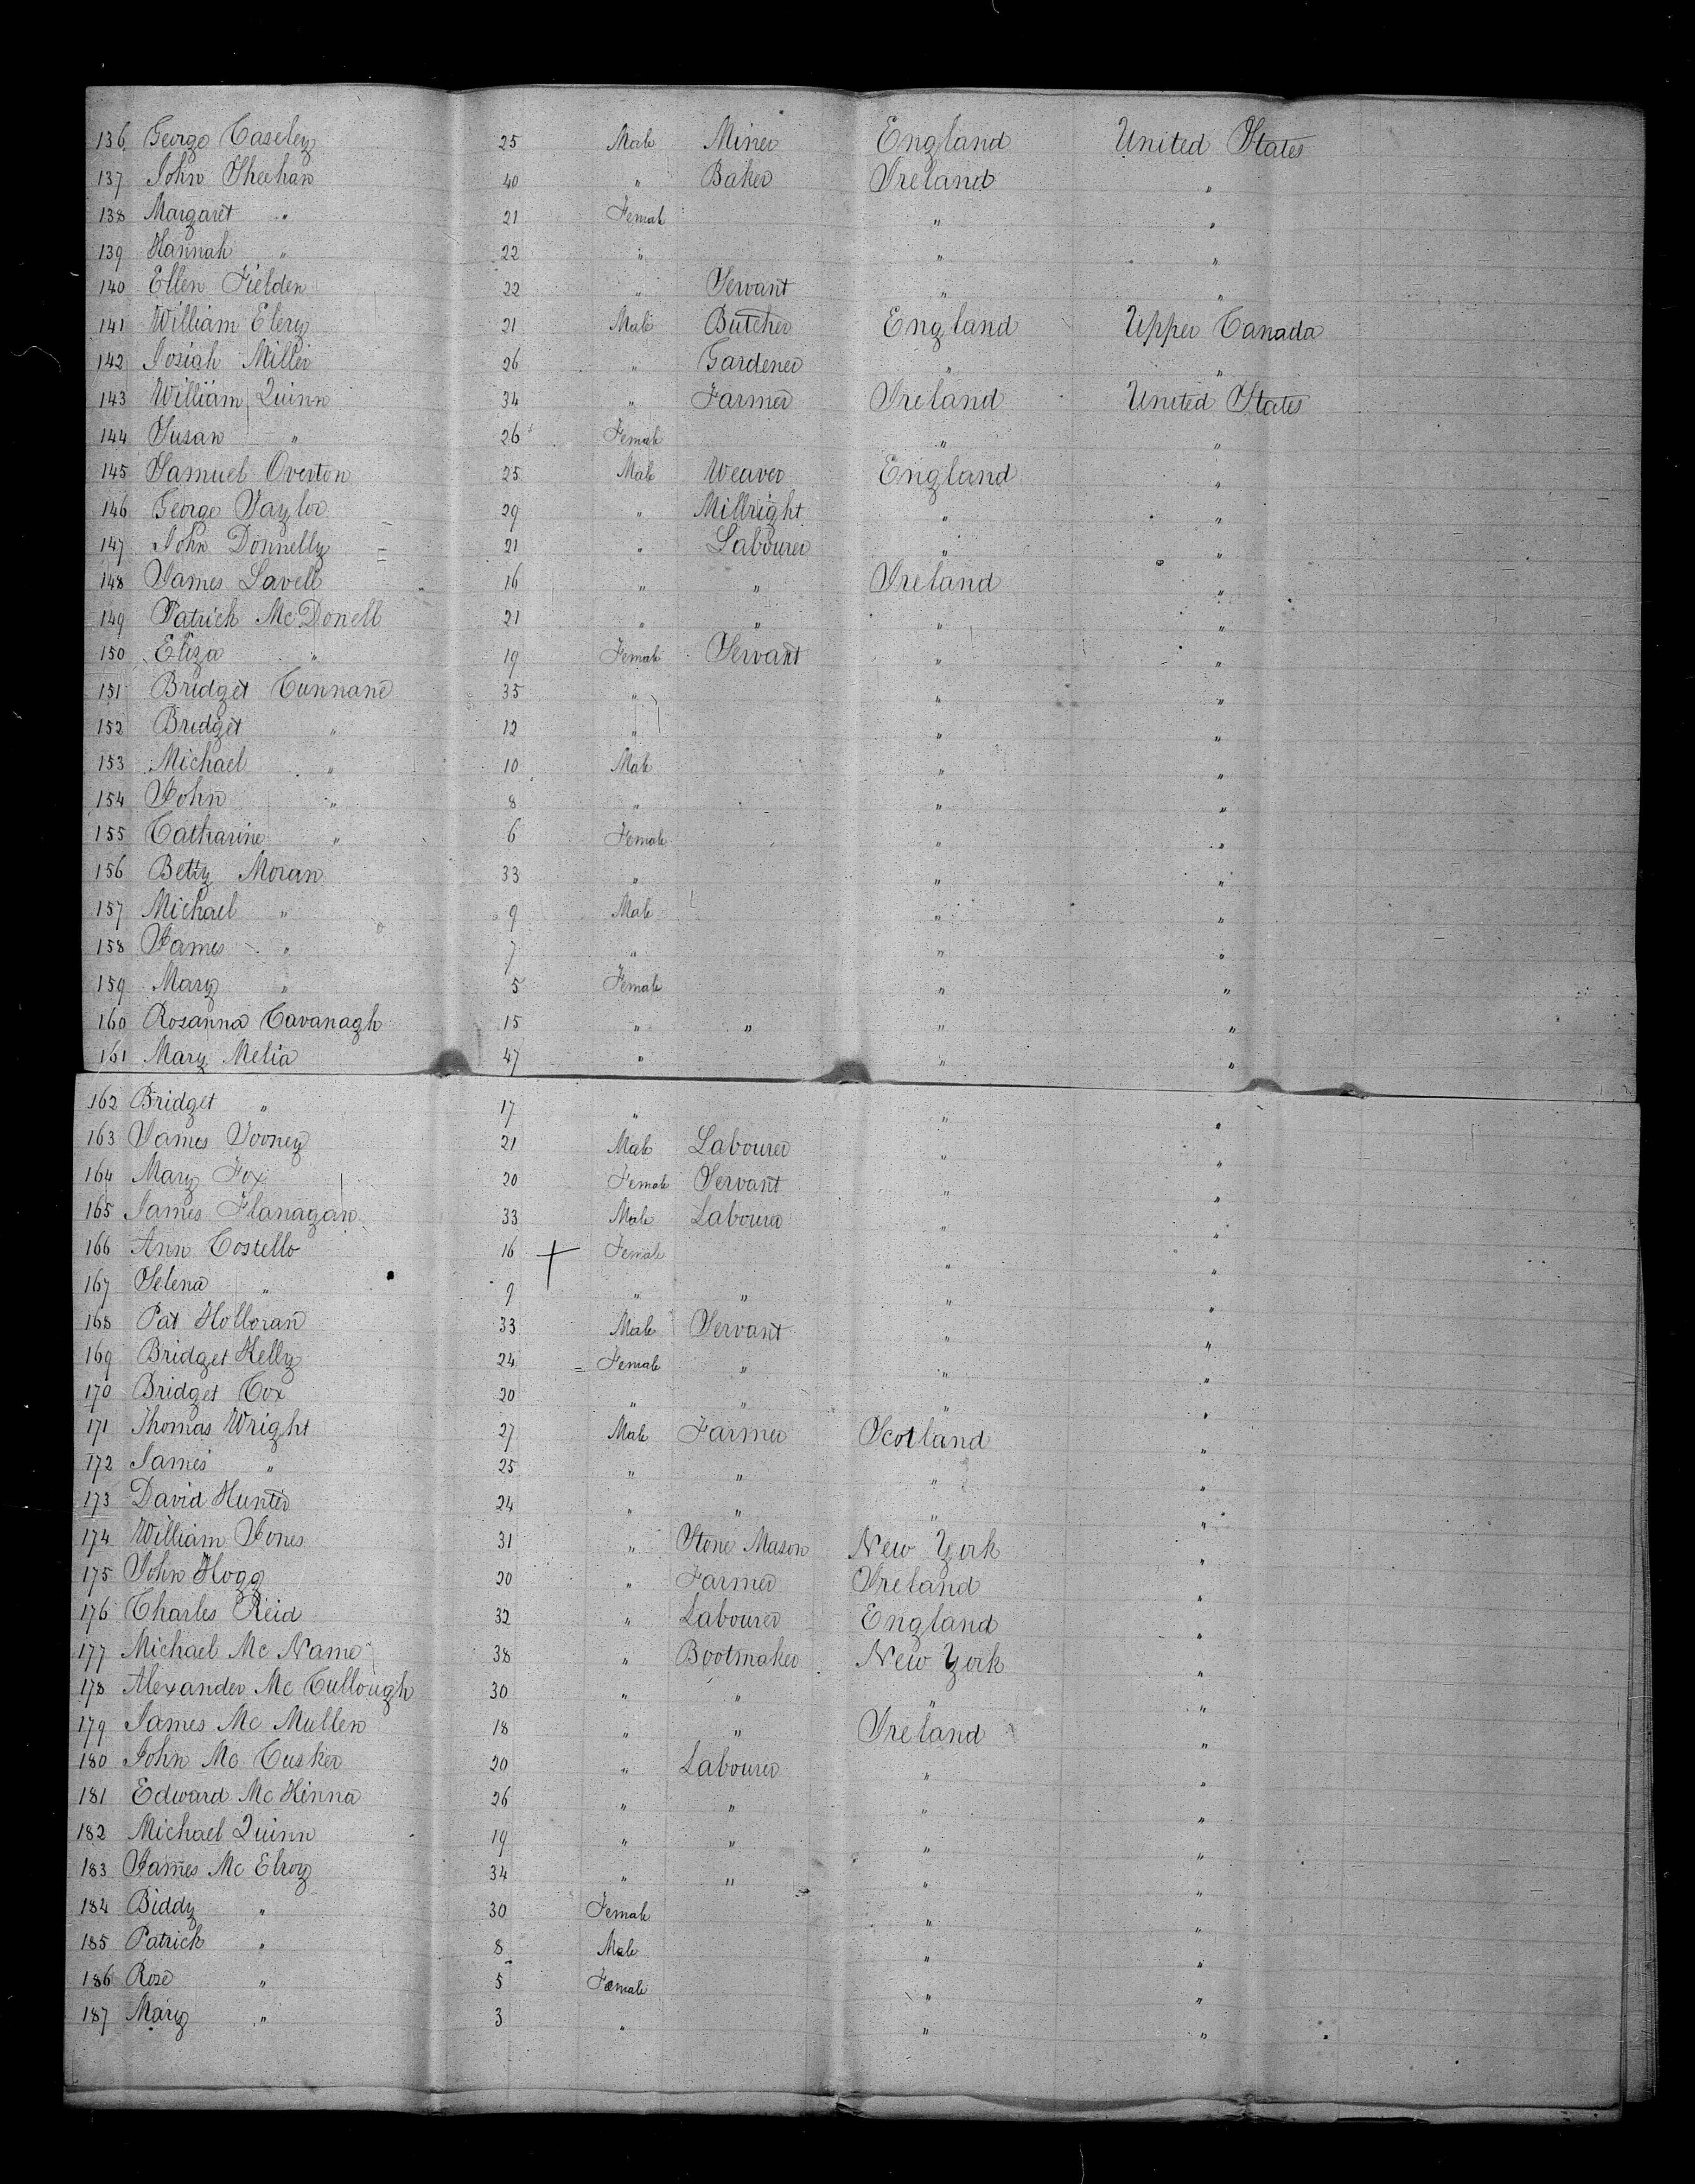 136 George Caseley 25 Male Miner England United States
137 John Sheehan 40 " Baker Ireland "
138 Margaret " 21 Female " "
139 Hannah " 22 " " "
140 Ellen Fielden 22 " Servant " "
141 William Elery 21 Male Butcher England Upper Canada
142 Josiah Miller 26 " Gardener " "
143 William Quinn 34 " Farmer Ireland United States
144 Susan " 26 Female " "
145 Samuel Overton 25 Male Weaver England "
146 George Taylor 29 " Millright " "
147 John Donnelly 21 " Labourer " "
148 James Lavell 16 " " Ireland "
149 Patrick McDonell 21 " " " "
150 Eliza " 19 Female Servant " "
151 Bridget Cunnane 35 " " "
152 Bridget " 12 " " "
153 Michael " 10 Male " "
154 John " 8 " " "
155 Catharine " 6 Female " "
156 Betty Moran 33 " " "
157 Michael " 9 Male " "
158 James " 7 " " "
159 Mary " 5 Female " "
160 Rosanna Cavanagh 15 " " " "
161 Mary Melia 47 " " "
162 Bridget " 17 " " "
163 James Tooney 21 Male Labourer " "
164 Mary Fox 20 Female Servant " "
165 James Flanagan 33 Male Labourer " "
166 Ann Costello 16 Female " "
167 Selena " 9 " " " "
168 Pat Holloran 33 Male Servant " "
169 Bridget Kelly 24 Female " " "
170 Bridget Cox 20 " " " "
171 Thomas Wright 27 Male Farmer Scotland "
172 James " 25 " " " "
173 David Hunter 24 " " " "
174 William Jones 31 " Stone Mason New York "
175 John Hogg 20 " Farmer Ireland "
176 Charles Reid 32 " Labourer England "
177 Michael Mc Name 38 " Bootmaker New York "
178 Alexander Mc Cullough 30 " " " "
179 James Mc Mullen 18 " " Ireland "
180 John Mc Cusker 20 " Labourer " "
181 Edward Mc Kinna 26 " " " "
182 Michael Quinn 19 " " " "
183 James Mc Elroy 34 " " " "
184 Biddy " 30 Female " "
185 Patrick " 8 Male " "
186 Rose " 5 Female " "
187 Mary " 3 " " "